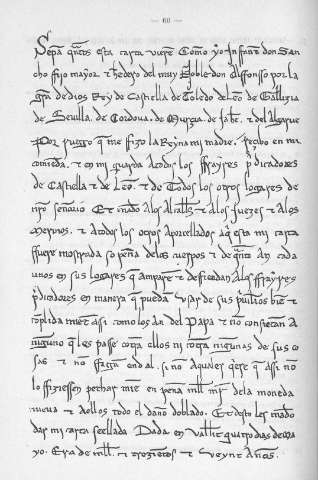 — 60 —
Sepã quãtos esta carta vierẽ Como yo Infante don San
cho fijo mayor τ heredero del muy Noble don Alffonsso por la
gr̃a de dios Rey de Castella de Toledo de leõ de Gallizia
de Sevilla de Cordova de Murzia de Jahẽ τ del Algarve
Por ruego q̃ me fizo la Reyna mi madre Reçibo en mi
comiẽda τ en mi guarda Atodos los ffrayres p̃dicadores
de Castella τ de Leõ τ de Todos los otros logares de
nr̃o señorio Et mãdo Alos Alcalłs τ Alos Juezes τ Alos
Merinos τ Atodos los otros Aportellados aq̃ esta mi carta
fuere mostrada so pena delos cuerpos τ de quãto An cada
unos en sus logares q̃ amparẽ τ deffiendan Alos ffrayres
p̃dicadores en manera q̃ puedã usar de sus privilios biẽ τ
cõplida miẽte Assi como los dã del Papa τ nõ consientan A
ninguno q̃ les passe cõtra ellos ni cõtra ningunas de sus co
sas τ no ffagã end al. si no Aquales q̃ere q̃ assi nõ
lo ffiziessen pechar miẽ en pena mill mr̃ dela moneda
nueva τ Aellos todo el daño doblado. Et desto les mãdo
dar mi carta seellada Dada en Vallit quatro dias de ma
yo. Era de mill τ trezientos τ veynt Años.